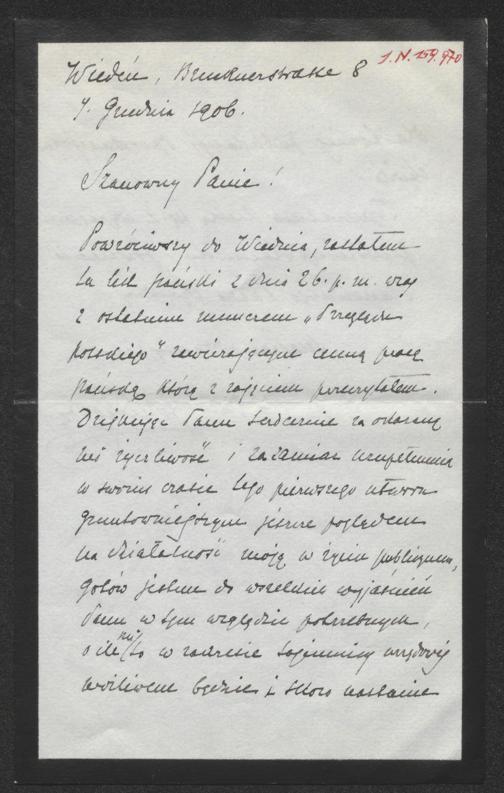 J.N. 159.970
Wiedeń, Brucknerstrasse 8
7. Grudnia 1906.
Szanowny Panie!
Powróciwszy do Wiednia, zastałem
tu list pański z dnia 26. p. m. wraz
z ostatnim numerem „Przeglądu
polskiego" zawierającym cenną pracę
pańską, którą z zajęciem przeczytałem.
Dziękując Panu serdecznie za okazaną
mi życzliwość i za zamiar uzupełnienia
w swoim czasie tego pierwszego utworu
gruntowniejszym jeszcze poglądem
na działalność moją w życiu publicznem,
gotów jestem do wszelkich wyjaśnień
Panu w tym względzie potrzebnych,
o ile mi to w zakresie tajemnicy urzędowej
możliwem będzie i skoro nastanie